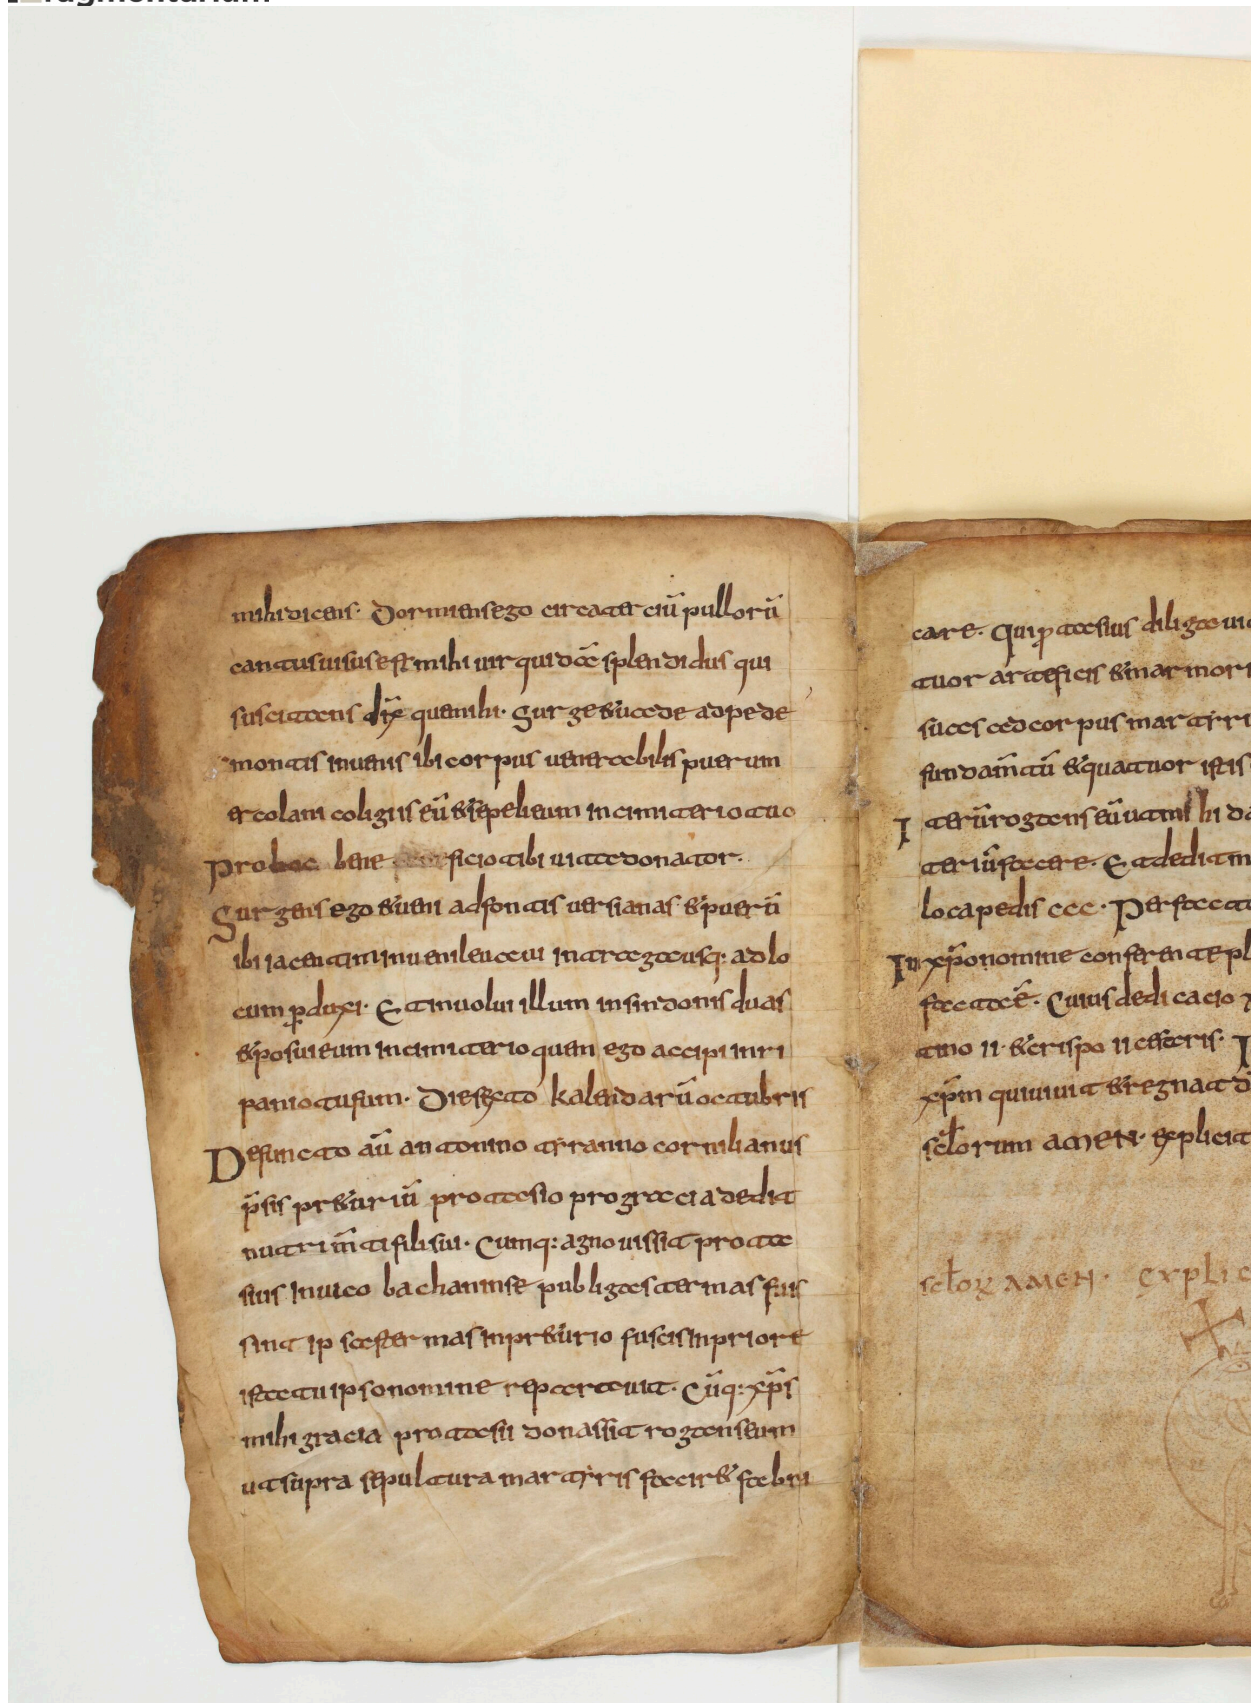 mihi dicens· Dormiens ego circa terciū pullorū
cantus uisus est mihi uir quidā splendidus qui
suscitans dix̄ quem ihi· Surge & uade ad pede
montis inuenis ibi corpus uenerabilis puerum
ercolani coligiis eū & sepeli eum in cimiterio tuo
Pro hoc bene ficio tibi uita donator·
Surgens ego & ueni ad fontis uersianas & puerū
ibi iacentim inueni leuaui in trāgā usq: ad lo
cum ꝑduxi· Et inuolui illum in sindonis duas
& posui eum in cimiterio quem ego accipi in ri
pa nio tusum· Die sexto kalendarū octubris
Defuncto aū antonino tyranno cornilianus
p̄sis pr&uriū protasio pro gracia dedit
nutrim̄ti fili sui· Cumq: agnouissit prota
sius in uico bachaninse publigas termas fuis
sint ipsas termas in pr&urio fuscis in priore
istatu ipso nomine reparauit· Cūq: xp̄s
mihi gracia protasii donassit rogans eum
ut supra sepultura martyris facir& fabri
care· Qui ꝓtasius diligau
tuor artefices & marmori
suas ad corpus martyri
fundam̄tū & quatuor istis
I terū rogans eū ut mihi da
teriū facere· Et dedit m
loca pedis ccc· Perfecta
In xp̄o nomine conferente pl
facta ē· Cuius dedicacio
tino ii· & crispo ii cesaris·
xp̄m qui uiuit & regnat d
sc̄lorum amen· explicit
sc̄loꝝ AMEN· explic